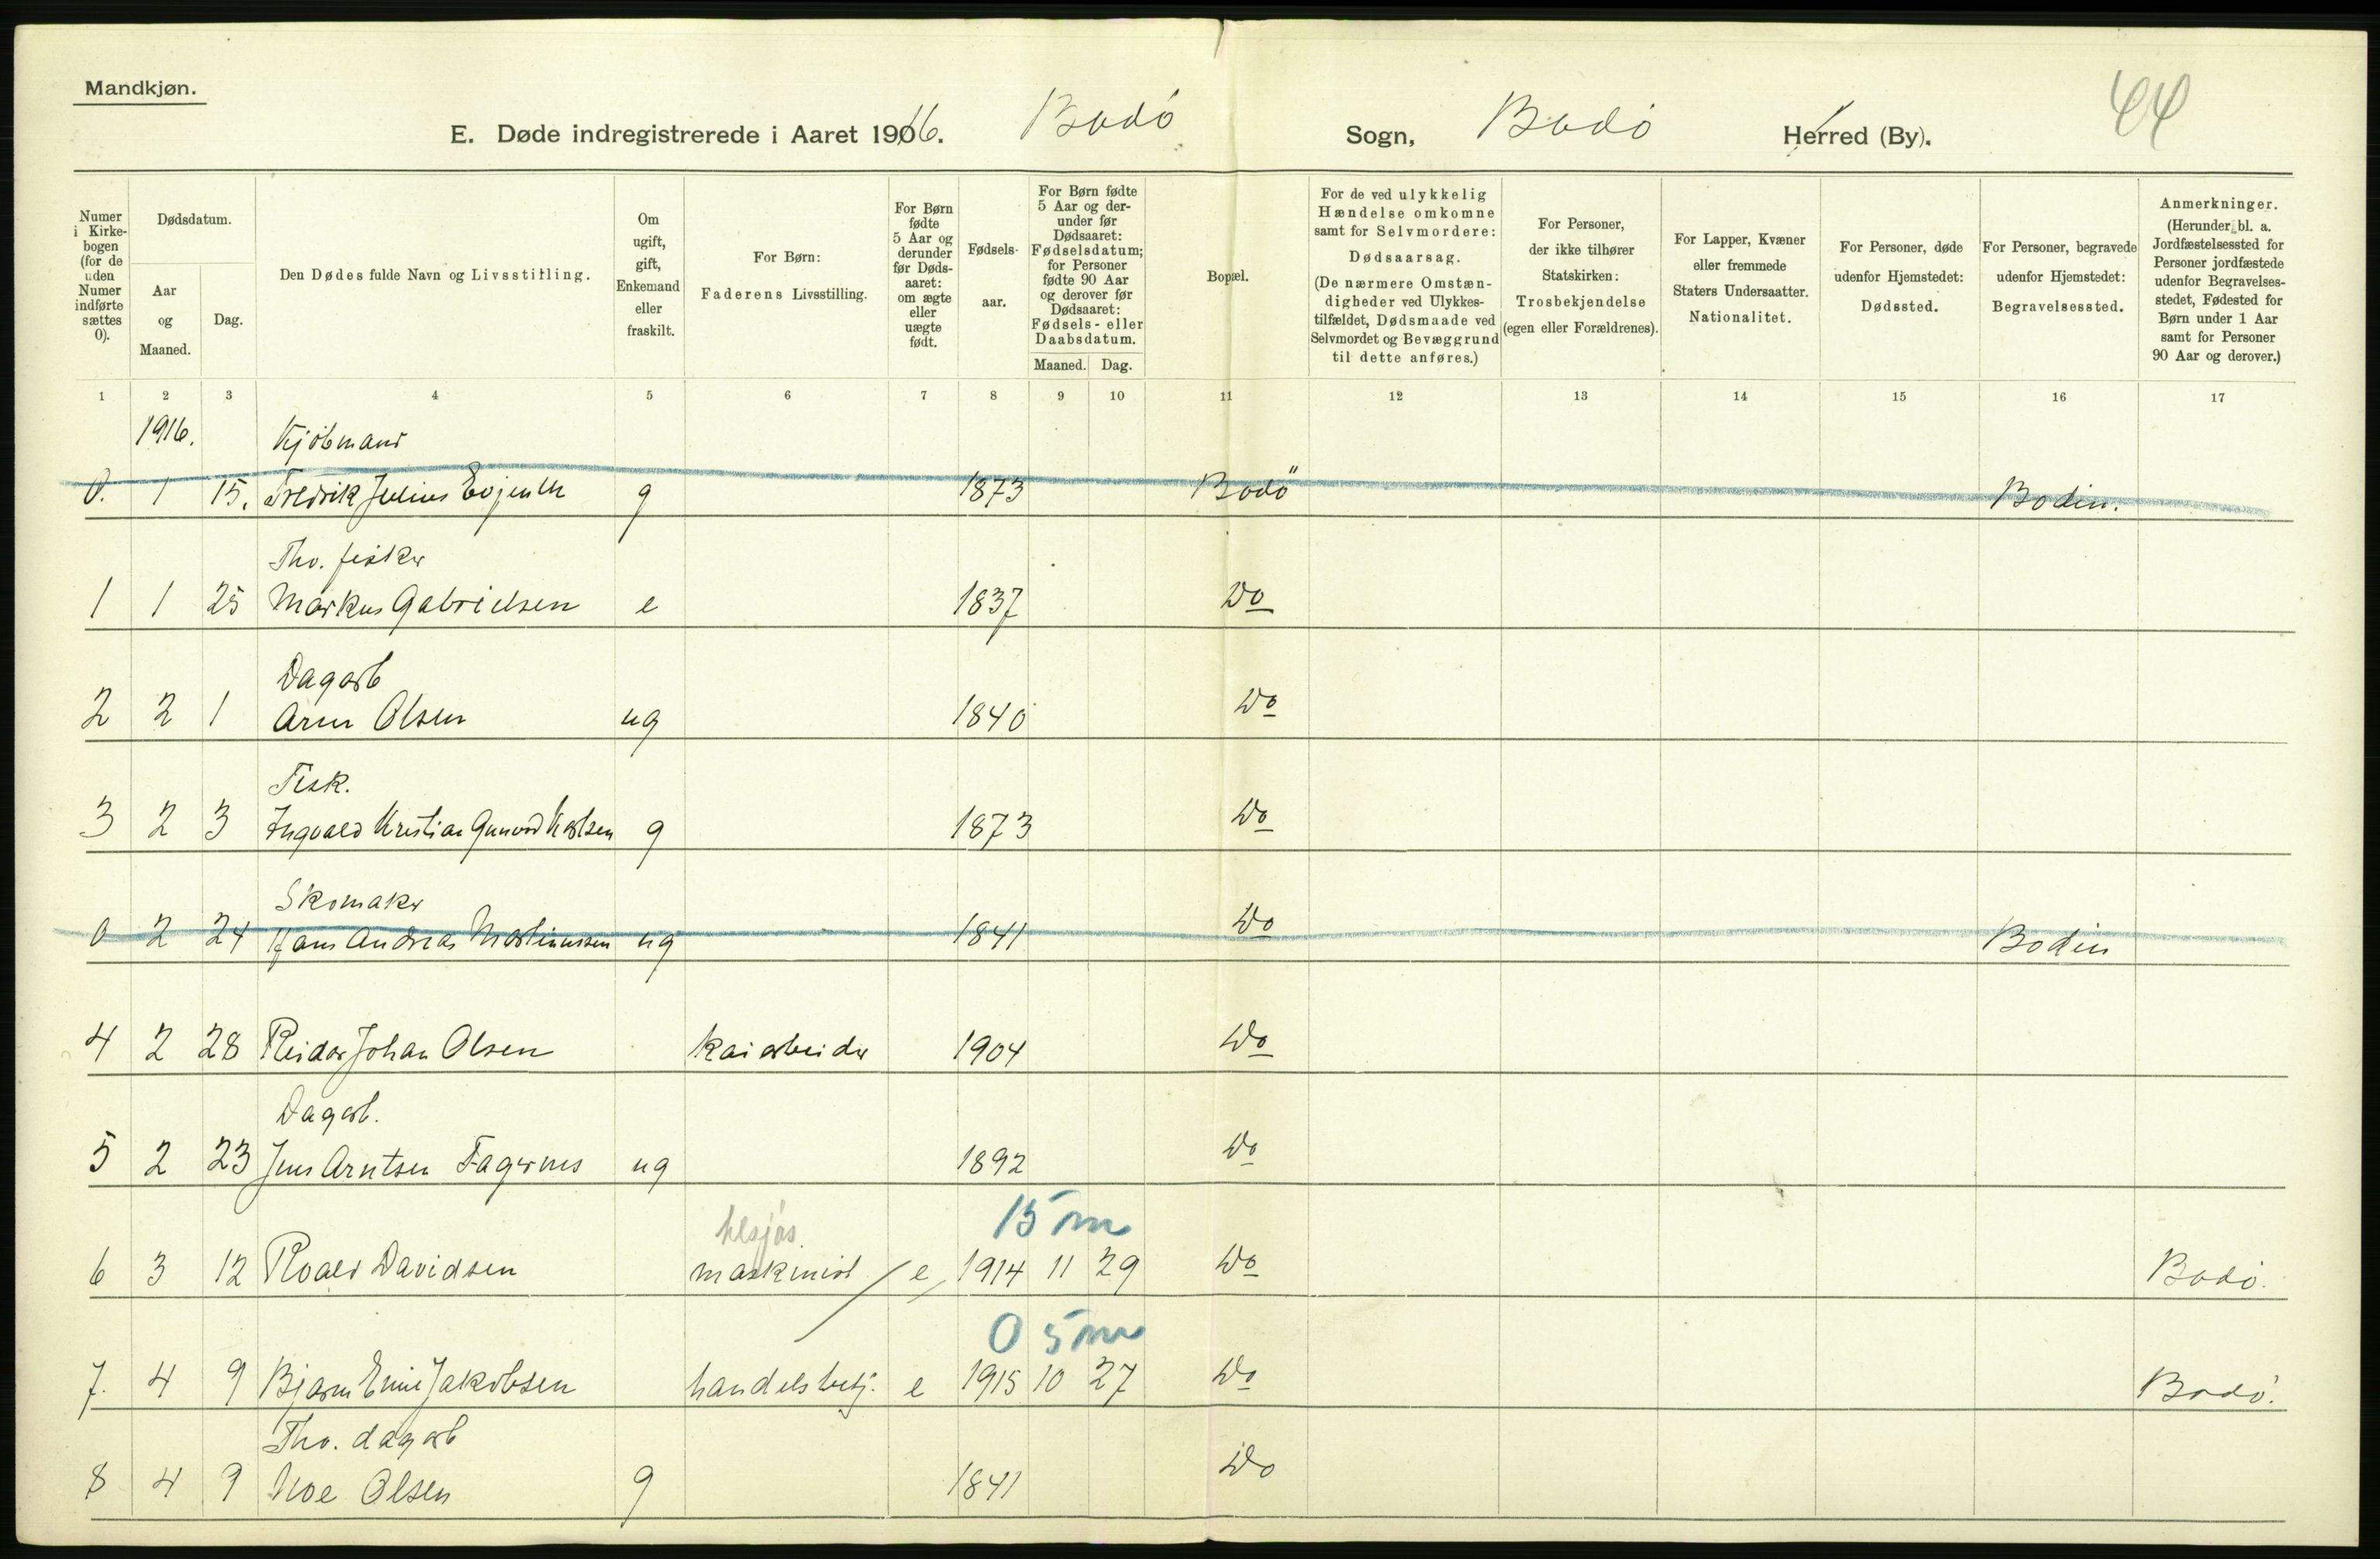 Mandkjøn.
44
E. Døde indregistrerede i Aaret 1916. Bodø Sogn, Bodø Herred (By).
Numer i Kirkebogen (for de uden Numer indførte sættes 0).
Dødsdatum.
Aar og Maaned.
Dag.
Den Dødes fulde Navn og Livsstilling.
Om ugift, gift, Enkemand eller fraskilt.
For Børn: Faderens Livsstilling.
For Børn fødte 5 Aar og derunder før Dødsaaret: om ægte eller uægte født.
Fødselsaar.
For Børn fødte 5 Aar og derunder før Dødsaaret: Fødselsdatum; for Personer fødte 90 Aar og derover før Dødsaaret: Fødsels- eller Daabsdatum.
Maaned. Dag.
Bopæl.
For de ved ulykkelig Hændelse omkomne samt for Selvmordere: Dødsaarsag. (De nærmere Omstændigheder ved Ulykkestilfældet, Dødsmaade ved Selvmordet og Bevæggrund til dette anføres.)
For Personer, der ikke tilhører Statskirken: Trosbekjendelse (egen eller Forældrenes).
For Lapper, Kvæner eller fremmede Staters Undersaatter. Nationalitet.
For Personer, døde udenfor Hjemstedet: Dødssted.
For Personer, begravede udenfor Hjemstedet: Begravelsessted.
Anmerkninger. (Herunder bl. a. Jordfæstelsessted for Personer jordfæstede udenfor Begravelsesstedet, Fødested for Børn under 1 Aar samt for Personer 90 Aar og derover.)
1 2 3 4 5 6 7 8 9 10 11 12 13 14 15 16 17
1916. Kjøbmand
0. 1 15. Fredrik Julius Evjenth g 1873 Bodø Bodin.
Fhv. fisker
1 1 25 Markus Gabrielsen e 1837 Do
Dagarb
2 2 1 Arn Olsen ug 1840 Do
Fisk.
3 2 3 Ingvald Kristian Karlsen g 1873 Do
Skomaker
0 2 24 Hans Andreas Martinussen ug 1841 Do Bodin
4 2 28 Reidar Johan Olsen kaiarbeider 1904 Do
Dagarb.
5 2 23 Jens Arntsen Fagernes ug 1892 Do
15 m
6 3 12 Roald Davidsen maskinist e 1914 11 29 Do Bodø.
0 5 m
7. 4 9 Bjarne Jakobsen handelsbetj. e 1915 10 27 Do Bodø.
Fhv. dagarb
8 4 9 Noe Olsen g 1841 Do